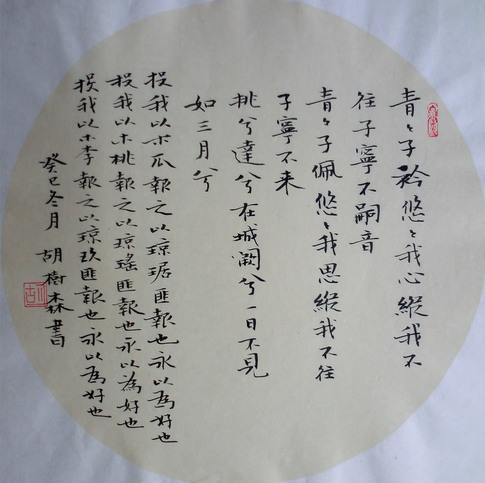 青々子衿悠々我心縱我不
往子寧不嗣音
青々子佩悠々我思縱我不往
子寧不来
挑兮達兮在城闕兮一日不見
如三月兮
投我以木瓜報之以琼琚匪報也永以為好也
投我以木桃報之以琼瑤匪報也永以為好也
投我以木李報之以琼玖匪報也永以為好也
癸巳冬月 胡樹森書